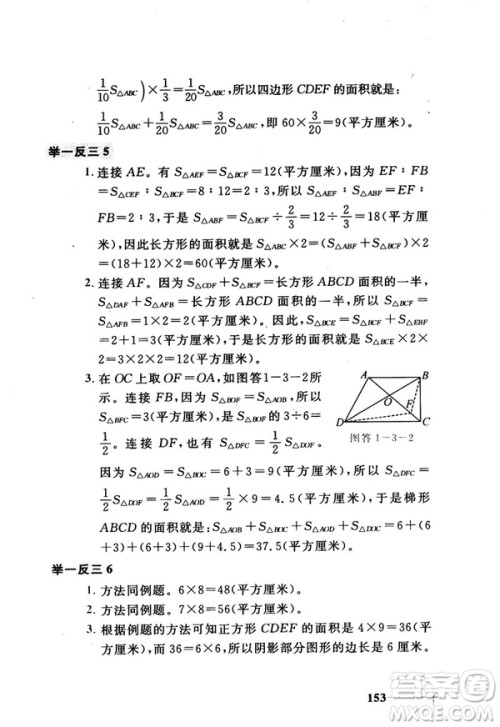 1/10 S△ABC) × 1/3 = 1/20 S△ABC，所以四边形 CDEF 的面积就是：
1/10 S△ABC + 1/20 S△ABC = 3/20 S△ABC，即 60 × 3/20 = 9(平方厘米)。
举一反三 5
1. 连接 AE。有 S△AEF = S△BCF = 12(平方厘米)，因为 EF：FB
= S△CEF：S△BCF = 8：12 = 2：3，所以 S△AEF：S△ABF = EF：
FB = 2：3，于是 S△ABF = S△BCF ÷ 2/3 = 12 ÷ 2/3 = 18(平方厘
米)，因此长方形的面积就是(S△ABF + S△BCF) × 2
= (18+12)×2 = 60(平方厘米)。
2. 连接 AF。因为 S△CDF + S△ABF = 长方形 ABCD 面积的一半，
S△DAF + S△BCF = 长方形 ABCD 面积的一半，所以
S△AFB = 1×2 = 2(平方厘米)，于是 S△AFB + S△EBF
= 2+1 = 3(平方厘米)，因此长方形的面积就是 S△ABE×2×
2 = 3×2×2 = 12(平方厘米)。
3. 在 OC 上取 OF = OA，如图答 1-3-2 所
示。连接 BF，因为 S△BOF = S△AOB = 3，所
以 S△BFC = 3，所以 S△BOF：S△BOC 的 3÷6 =
1/2。连接 DF，也有 S△DOF：S△DOC = 1/2。
A
B
O
F
D
C
图答 1-3-2
因为 S△AOD = S△BOC = 6+3 = 9(平方厘米)，所以 S△AOD =
1/2 S△AOD = 1/2 × 9 = 4.5(平方厘米)，于是，梯形
ABCD 的面积就是：S△AOB + S△BOC + S△DOC + S△AOD = 3+(6
+3)+(6×3)+4.5 = 37.5(平方厘米)。
举一反三 6
1. 方法同例题。6×8 = 48(平方厘米)。
2. 方法同例题。7×8 = 56(平方厘米)。
3. 根据例题的方法可知正方形 CDEF 的面积 = 4×9 = 36(平方
厘米)，而 36 = 6×6，所以阴影部分图形的边长是 6 厘米。
153